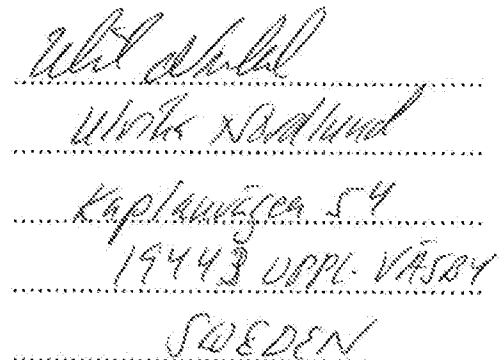 Ulrika Nordlund
Kaplanvägen 54
19443 UPPL. VÄSBY
SWEDEN